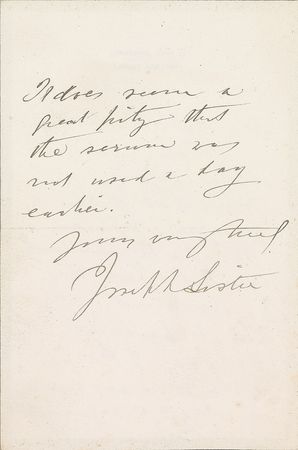 It does seem a
great pity that
the serum was
not used a day
earlier.
Yours very truly
Joseph Lister